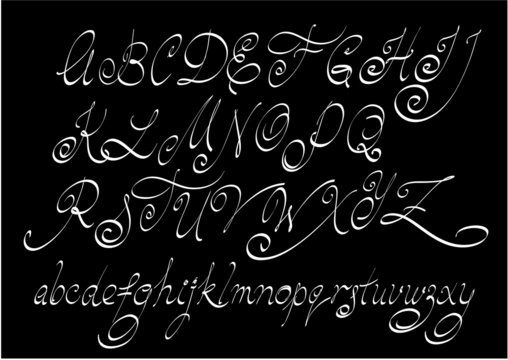 A B C D E F G H I J
K L M N O P Q
R S T U V W X Y Z
abcdefghijklmnopqrstuvwzxy